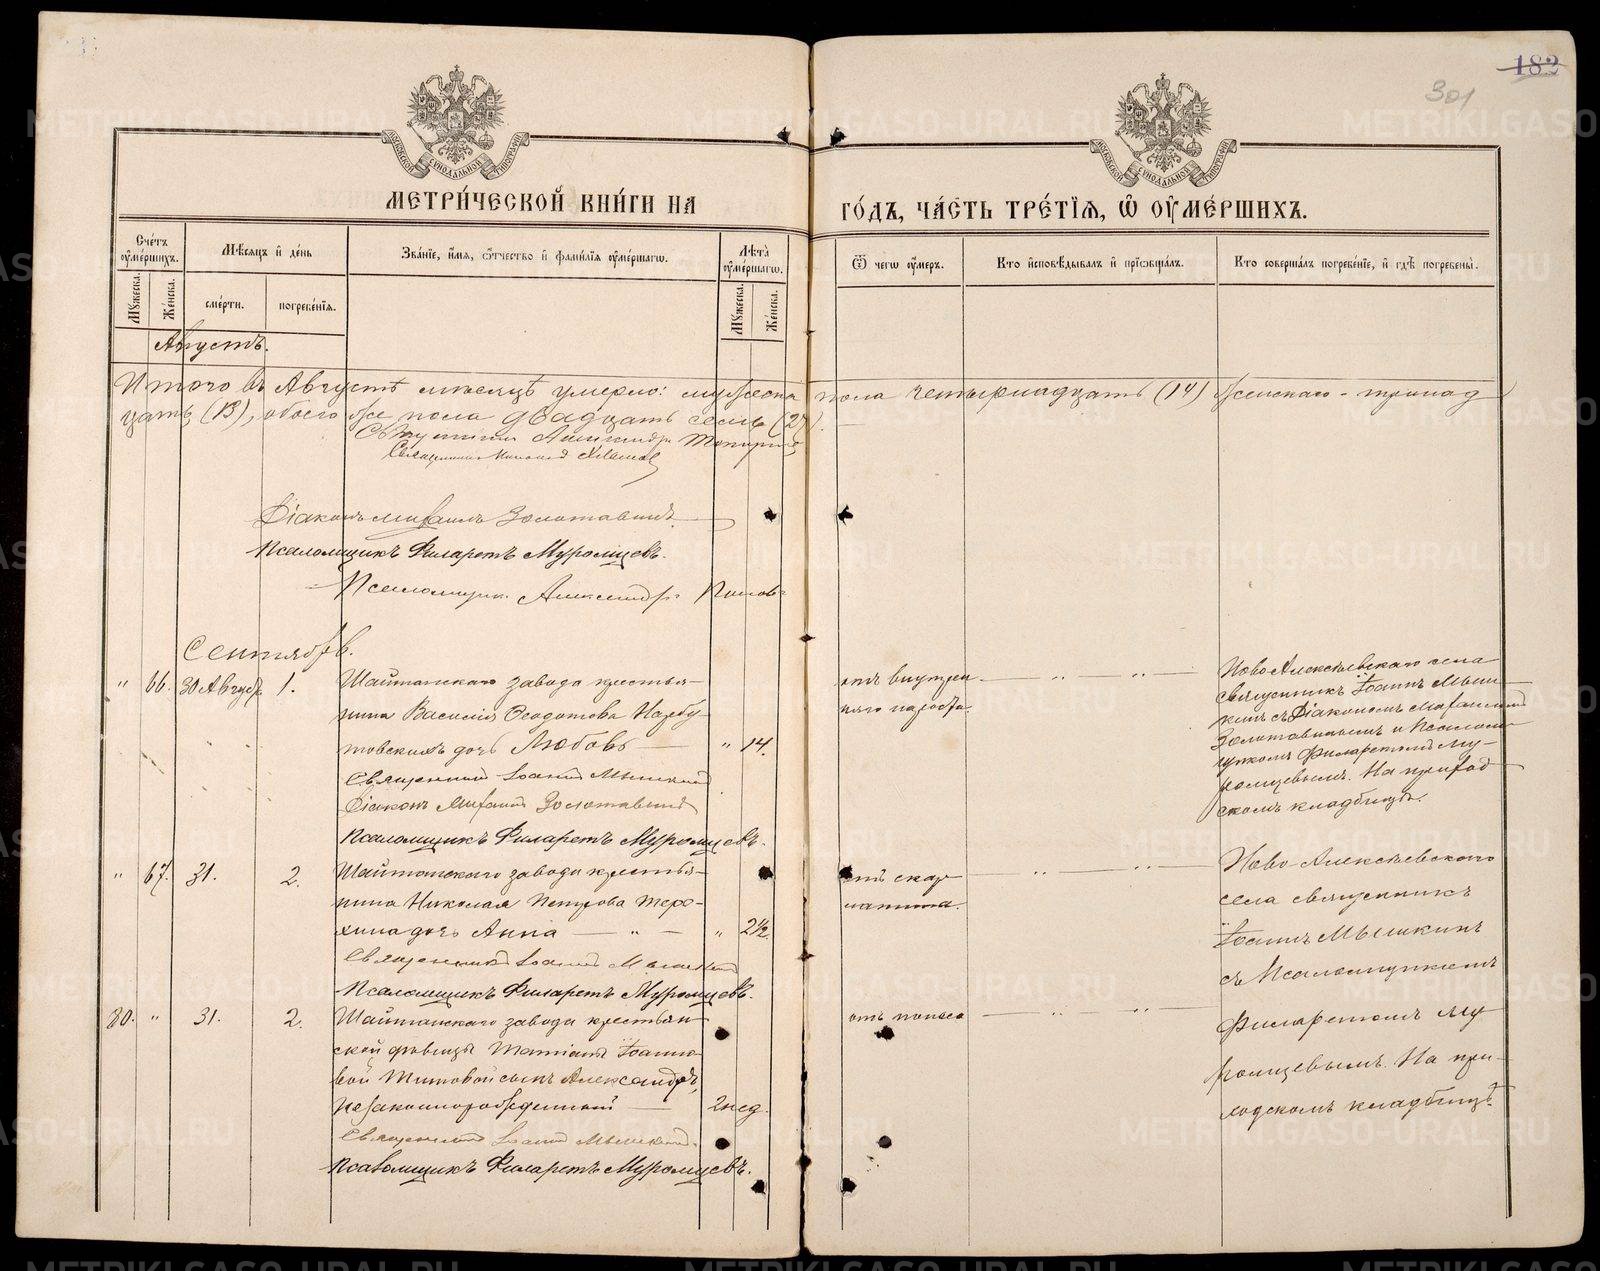 182
301
МЕТРИ́ЧЕСКОЙ КНИ́ГИ НА
ГО́ДЪ, ЧА́СТЬ ТРЕ́ТЇѦ, Ѿ ОУМЕ́РШИХЪ.
Сче́тъ оуме́ршихъ.
Мꙋжеска.
Же́нска.
Мѣ́сѧцъ и де́нь
сме́рти.
погребе́нїѧ.
Зва́нїе, и́мѧ, ѻ́тчество и фами́лїѧ оуме́ршагѡ.
Лѣта̀ оуме́ршагѡ.
Мꙋжеска.
Же́нска.
Ѿ чегѡ оу́меръ.
Кто исповѣ́дывалъ и прїѡбща́лъ.
Кто соверша́лъ погребе́нїе, и гдѣ̀ погребены̀.
Августъ.
Итого въ Августѣ мѣсяцѣ умерло: мужеска пола четырнадцать (14) женскаго - тринад
цать (13), обоего же пола двадцать семь (27).
Священникъ Александръ
Священникъ
Діаконъ Михаилъ Золотавинъ
Псаломщикъ Филаретъ Муромцевъ.
Псаломщик Александръ Попов
Сентябрь.
" 66. 30 Август. 1. Шайтанскаго завода крестья-
нина Василия Ѳеодотова
товскихъ дочь Любовь — " 14.
Священникъ Іоаннъ Мышкинъ
Діаконъ Михаилъ Золотавинъ
Псаломщикъ Филаретъ Муромцевъ.
отъ внутрен
няго нарыва.
Ново Алексѣевскаго села
священникъ Іоаннъ Мыш-
кинъ съ Діакономъ Михаиломъ
Золотавинымъ и Псалом-
щикомъ Филаретомъ Му-
ромцевымъ. На приход
скомъ кладбищѣ.
" 67. 31. 2. Шайтанскаго завода крестья-
нина Николая Петрова Теро-
хина дочь Анна — " — " 2½.
Священникъ Іоаннъ Мышкинъ
Псаломщикъ Филаретъ Муромцевъ.
отъ скар
латина.
Ново-Алексѣевскаго
села священникъ
Іоаннъ Мышкинъ
съ Псаломщикомъ
Филаретомъ Му
ромцевымъ. На при-
ходскомъ кладбищѣ.
80. " 31. 2. Шайтанскаго завода крестьян-
ской дѣвицы Татіаны Іоанно-
вой Титовой сынъ Александръ,
незаконнорожденный — 2 нед.
Священникъ Іоаннъ Мышкинъ.
Псаломщикъ Филаретъ Муромцевъ.
отъ поноса